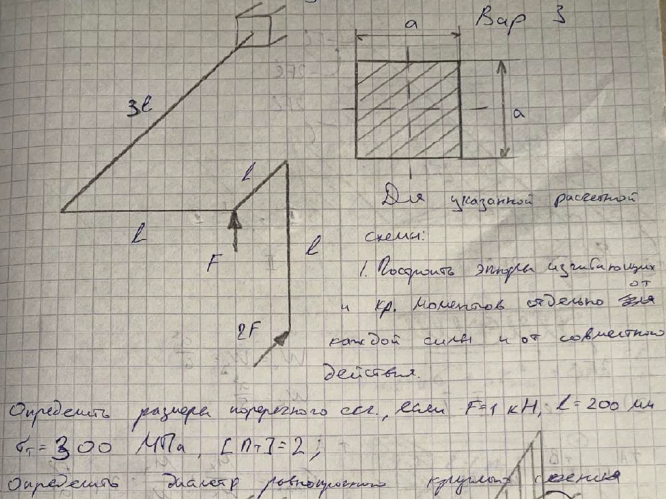 Вар 3
a
3l
a
l
l
l
F
2F
Для указанной расчетной
схемы:
1. Построить эпюры изгибающих
и кр. моментов отдельно от
каждой силы и от совместного
действия.
Определить размеры поперечного сеч., если F=1 кН; l=200 мм
σт=300 МПа, [nт]=2;
Определить диаметр равнопрочного круглого сечения